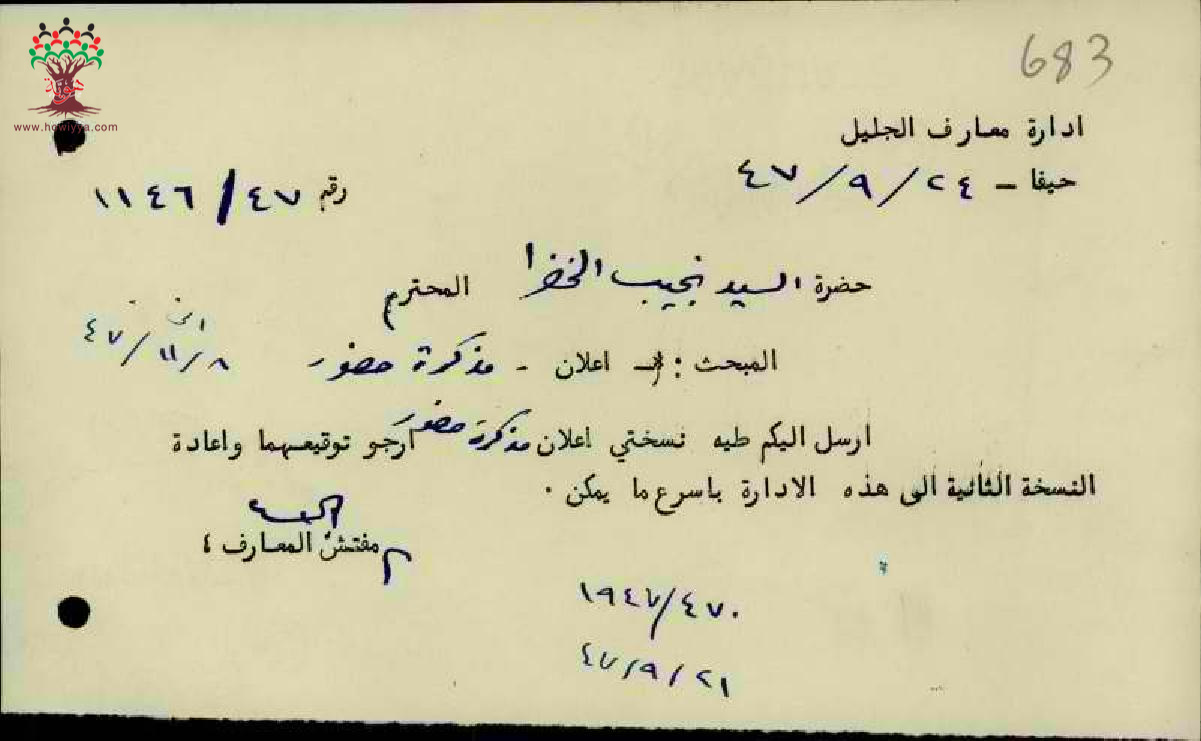 683
هوية
www.howiyya.com
ادارة معارف الجليل
حيفا - ٢٤/٩/٤٧
رقم ٤٧/١١٤٦
حضرة السيد نجيب الخضرا المحترم
المبحث : - اعلان - مذكرة حضور
٨/١١/٤٧
ارسل اليكم طيه نسختي اعلان مذكرة حضور ارجو توقيعهما واعادة
النسخة الثانية الى هذه الادارة باسرع ما يمكن .
مفتش المعارف ؛
٤٧٠/١٩٤٧
٢١/٩/٤٧